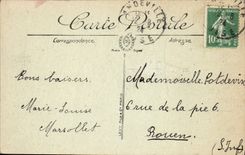 Carte Postale
Correspondance
Adresse
Bons baisers
Marie-Louise
Marsollet
Mademoiselle Potdevin
6 rue de la pie 6.
Rouen
10